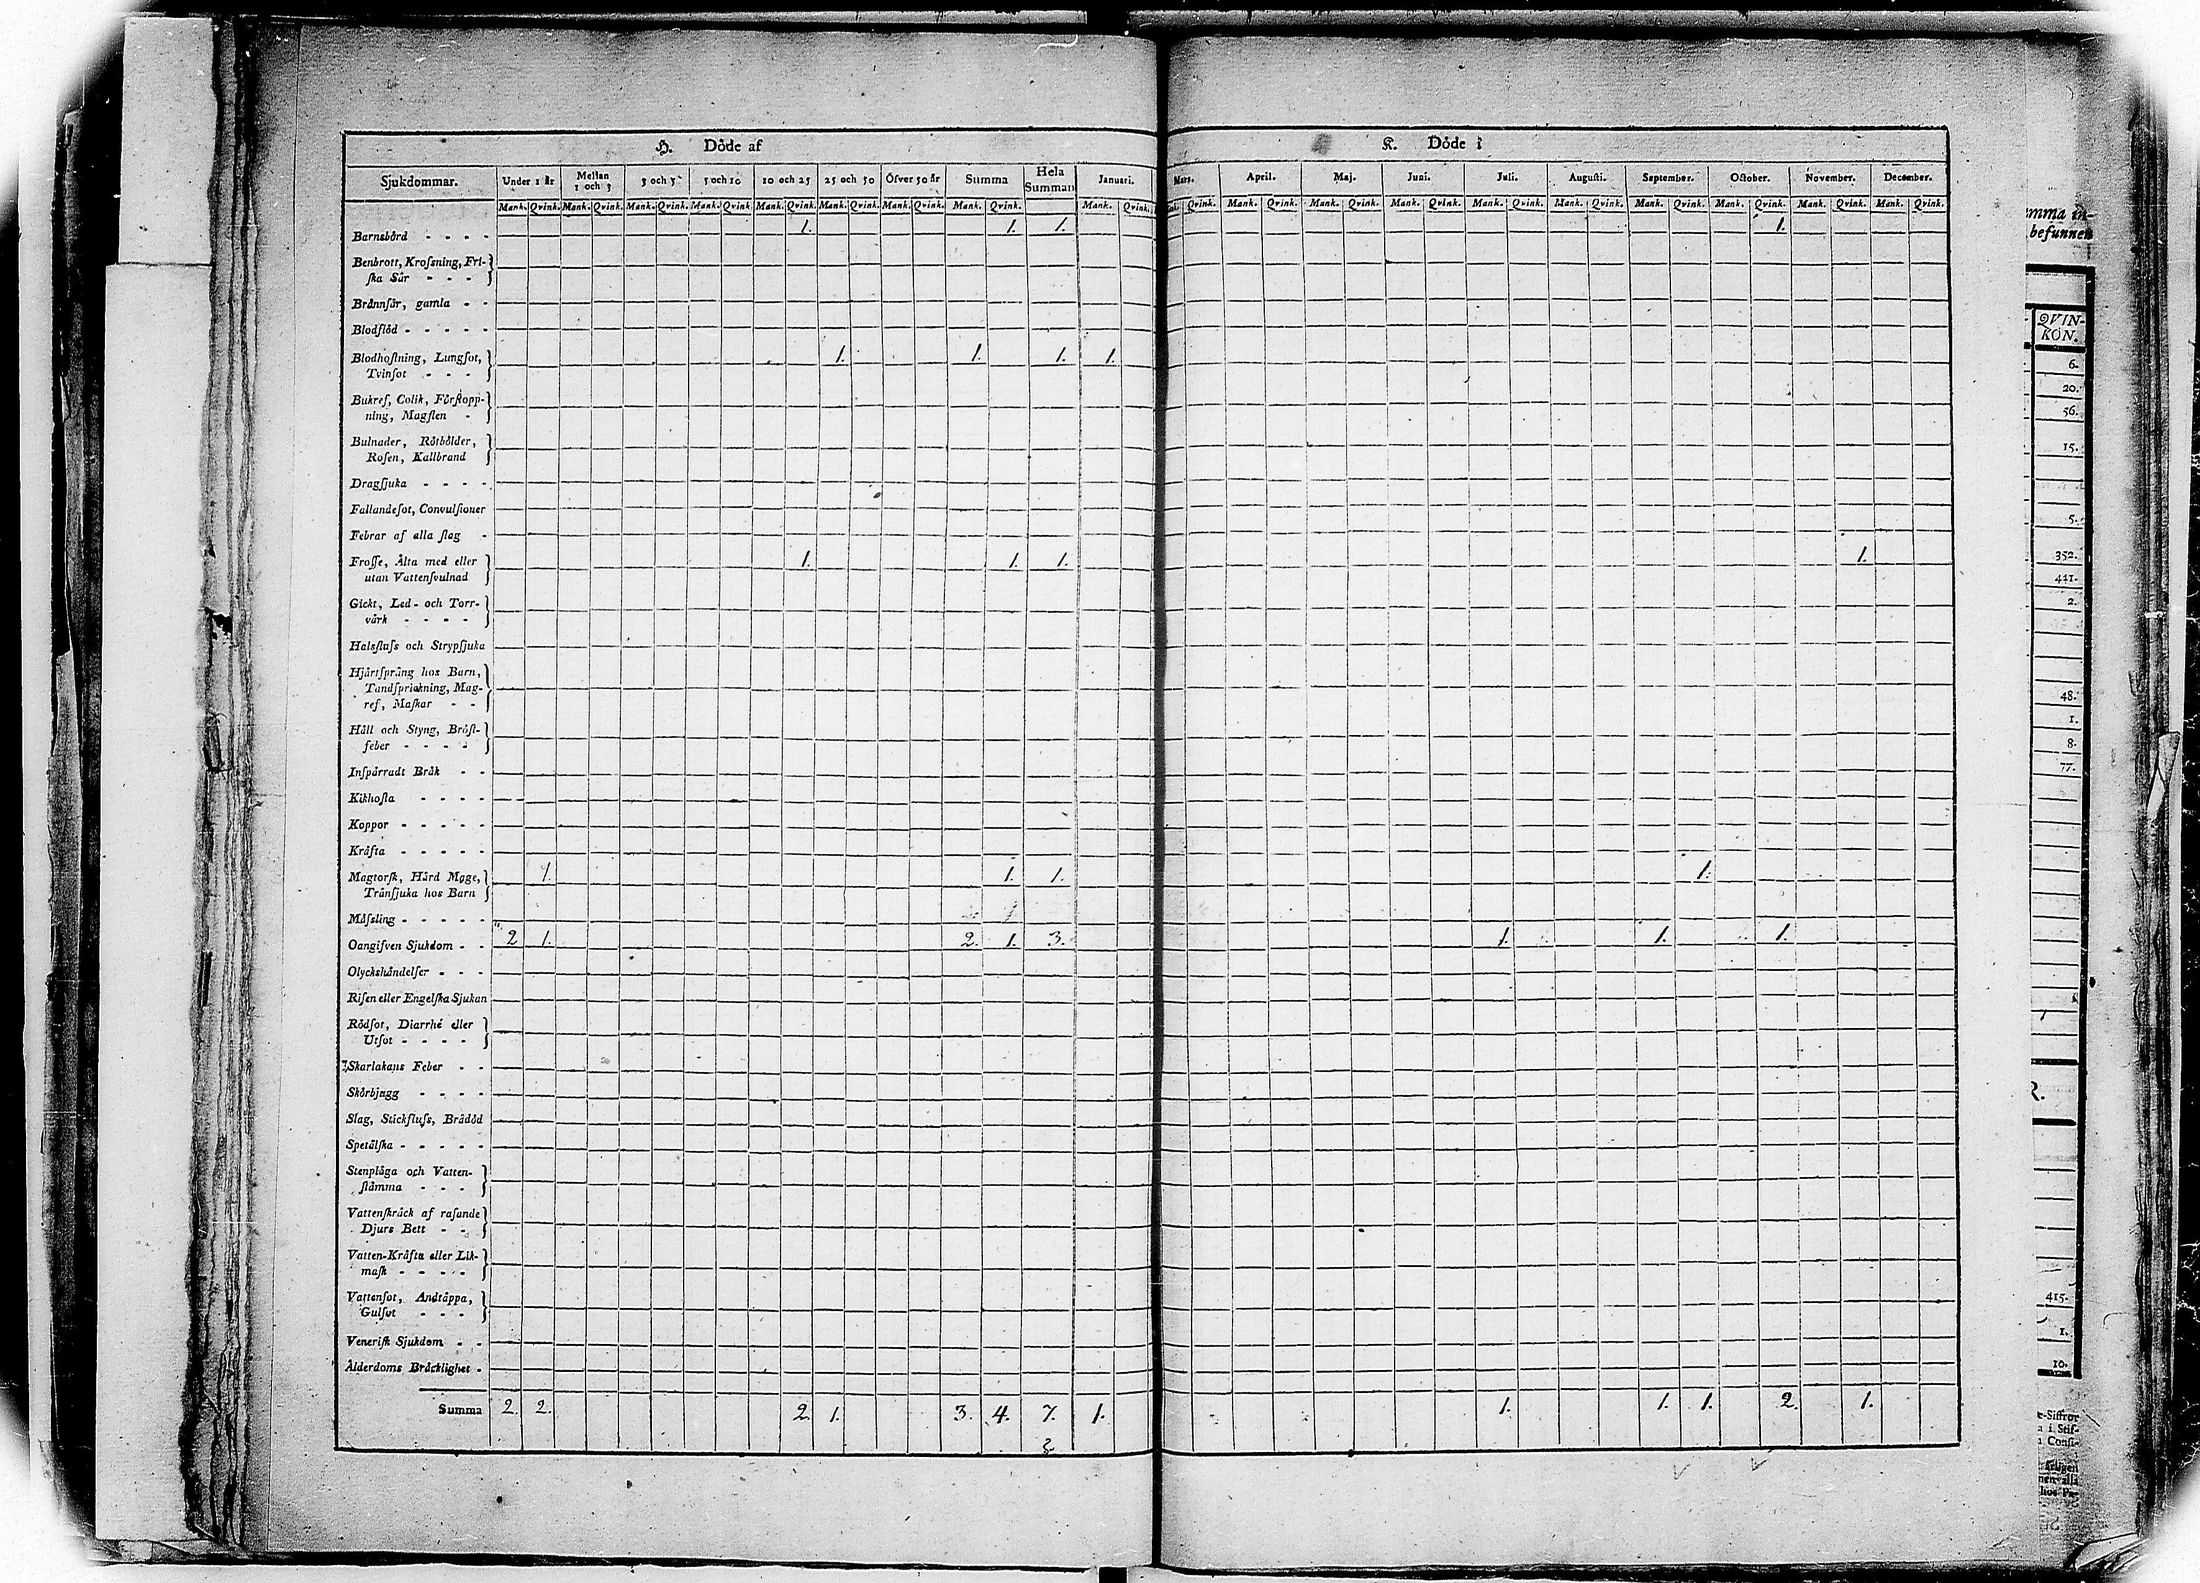 H. Döde af K. Döde i
Sjukdommar. Under 1 år Mellan 1 och 3 3 och 5 5 och 10 10 och 25 25 och 50 Öfver 50 år Summa Hela Summan Januari. Mars. April. Maj. Juni. Juli. Augusti. September. October. November. December.
Mank. Qvink. Mank. Qvink. Mank. Qvink. Mank. Qvink. Mank. Qvink. Mank. Qvink. Mank. Qvink. Mank. Qvink. Mank. Qvink. Qvink. Mank. Qvink. Mank. Qvink. Mank. Qvink. Mank. Qvink. Mank. Qvink. Mank. Qvink. Mank. Qvink. Mank. Qvink. Mank. Qvink.
Barnsbörd - - - - 1. 1. 1. 1.
Benbrott, Krofsning, Fri-
ſka Sår - - -
Brännſår, gamla - -
Blodflöd - - - - -
Blodhoſtning, Lungſot, 1. 1. 1. 1.
Tvinſot - - -
Bukref, Colik, Förſtopp-
ning, Magſten -
Bulnader, Rötbölder,
Roſen, Kallbrand
Dragſjuka - - - -
Fallandeſot, Convulſioner
Febrar af alla ſlag -
Froſſe, Älta med eller 1. 1. 1. 1.
utan Vattenſvulnad
Gickt, Led- och Torr-
värk - - - -
Halsfluſs och Strypſjuka
Hjärtſprång hos Barn,
Tandſprickning, Mag-
ref, Maſkar - -
Håll och Styng, Bröſt-
feber - - - -
Inſpärradt Bråk - -
Kikhoſta - - - -
Koppor - - - - -
Kräfta - - - - -
Magtorſk, Hård Mage, 1. 1. 1. 1.
Trånſjuka hos Barn
Mäſsling - - - - -
Oangifven Sjukdom - - 2 1. 2. 1. 3. 1. 1. 1.
Olyckshändelſer - - -
Riſen eller Engelſka Sjukan
Rödſot, Diarrhé eller
Utſot - - - -
Skarlakans Feber - -
Skörbjugg - - - -
Slag, Stickfluſs, Brådöd
Spetälſka - - - - -
Stenplåga och Vatten-
ſtämma - - -
Vattenſkräck af raſande
Djurs Bett - -
Vatten-Kräfta eller Lik-
maſk - - - -
Vattenſot, Andtäppa,
Gulſot - - -
Veneriſk Sjukdom - -
Ålderdoms Bräcklighet -
Summa 2. 2. 2. 1. 3. 4. 7. 1. 1. 1. 1. 2. 1.
mma in-
befunnen
QVIN-
KÖN.
6.
20.
56.
15.
5.
352.
441.
2.
48.
1.
8.
77.
R.
415.
1.
10.
e-Siffror
a i Stif-
Conſi-